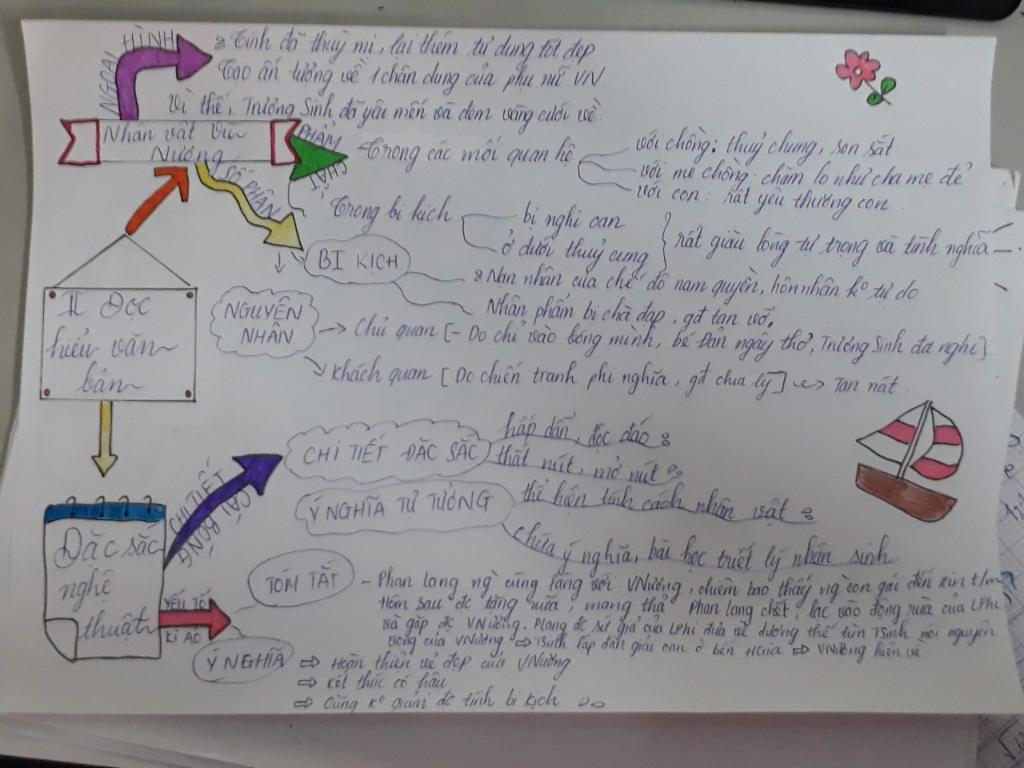 NGOẠI HÌNH
Tính đã thuỳ mị, lại thêm tư dung tốt đẹp
Tạo ấn tượng về 1 chân dung của phụ nữ VN.
Vì thế, Trương Sinh đã yêu mến và đem vàng cưới về.
Nhân vật Vũ
Nương
PHẨM CHẤT
Trong các mối quan hệ
với chồng: thuỷ chung, son sắt
với mẹ chồng: chăm lo như cha mẹ đẻ
với con: rất yêu thương con
SỐ PHẬN
Trong bi kịch
bị nghi oan
ở dưới thuỷ cung
rất giàu lòng tự trọng và tình nghĩa
BI KỊCH
Nạn nhân của chế độ nam quyền, hôn nhân k° tự do
Nhân phẩm bị chà đạp, gđ tan vỡ.
II Đọc
hiểu văn
bản
NGUYÊN
NHÂN
Chủ quan [- Do chỉ vào bóng mình, bé Đản ngây thơ, Trương Sinh đa nghi]
Khách quan [Do chiến tranh phi nghĩa, gđ chia ly] Tan nát.
CHI TIẾT
CÁI BÓNG
CHI TIẾT ĐẶC SẮC
hấp dẫn, độc đáo
thắt nút, mở nút
Ý NGHĨA TƯ TƯỞNG
thể hiện tính cách nhân vật
chứa ý nghĩa, bài học triết lý nhân sinh
Đặc sắc
nghệ
thuật
YẾU TỐ
KÌ ẢO
TÓM TẮT
- Phan Lang ng` cùng làng với VNương, chiêm bao thấy ng` con gái đến xin t/m
Hôm sau đc tặng rùa, mang thả. Phan Lang chết, lạc vào động rùa của LPhi
và gặp đc VNương. PLang đc sứ giả của LPhi đưa về dương thế tìm TSinh nói nguyện
vọng của VNương ⇒ TSinh lập đàn giải oan ở bến HGia ⇒ VNương hiện về.
Ý NGHĨA
⇒ Hoàn thiện vẻ đẹp của VNương
⇒ Kết thúc có hậu
⇒ Cũng k° giảm đc tính bi kịch